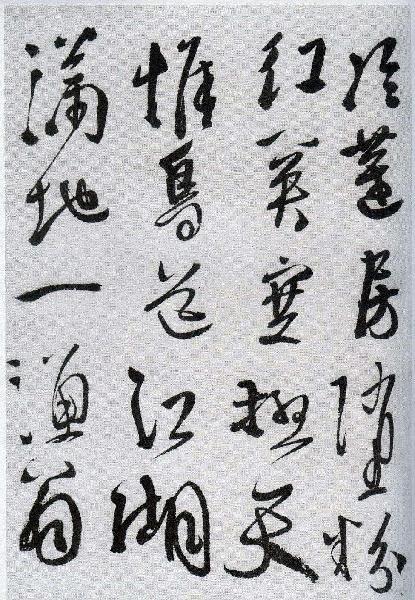 冷蓮房墜粉
紅關塞極天
惟鳥道江湖
滿地一漁翁